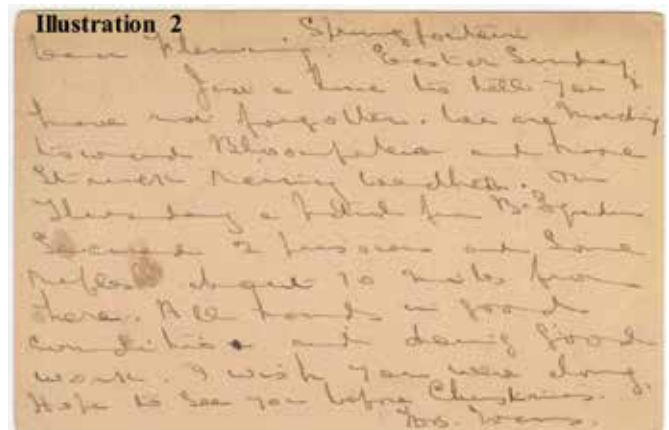 Illustration 2
Springfontein
Dear Fleming. Easter Sunday
Just a line to tell you I
have not forgotten. We are
toward Bloomfontein and have
struck rainy weather. On
Thursday a patrol from B. Squadron
Secured 2 prisoners and some
rifles about 10 miles from
here. All hands in good
condition and doing good
work. I wish you were along.
Hope to see you before Christmas.